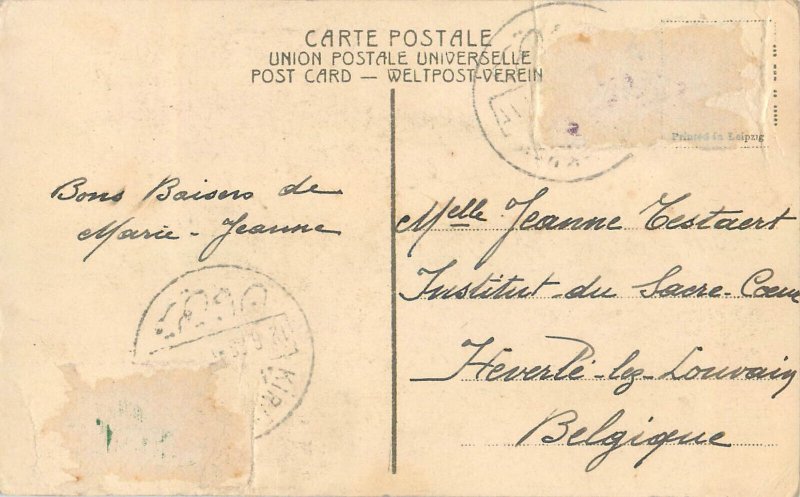 CARTE POSTALE
UNION POSTALE UNIVERSELLE
POST CARD — WELTPOST-VEREIN
Printed in Leipzig
Bons Baisers de
Marie-Jeanne
Melle Jeanne Testaert
Institut du Sacre-Cœur
Heverlé-lez-Louvain
Belgique